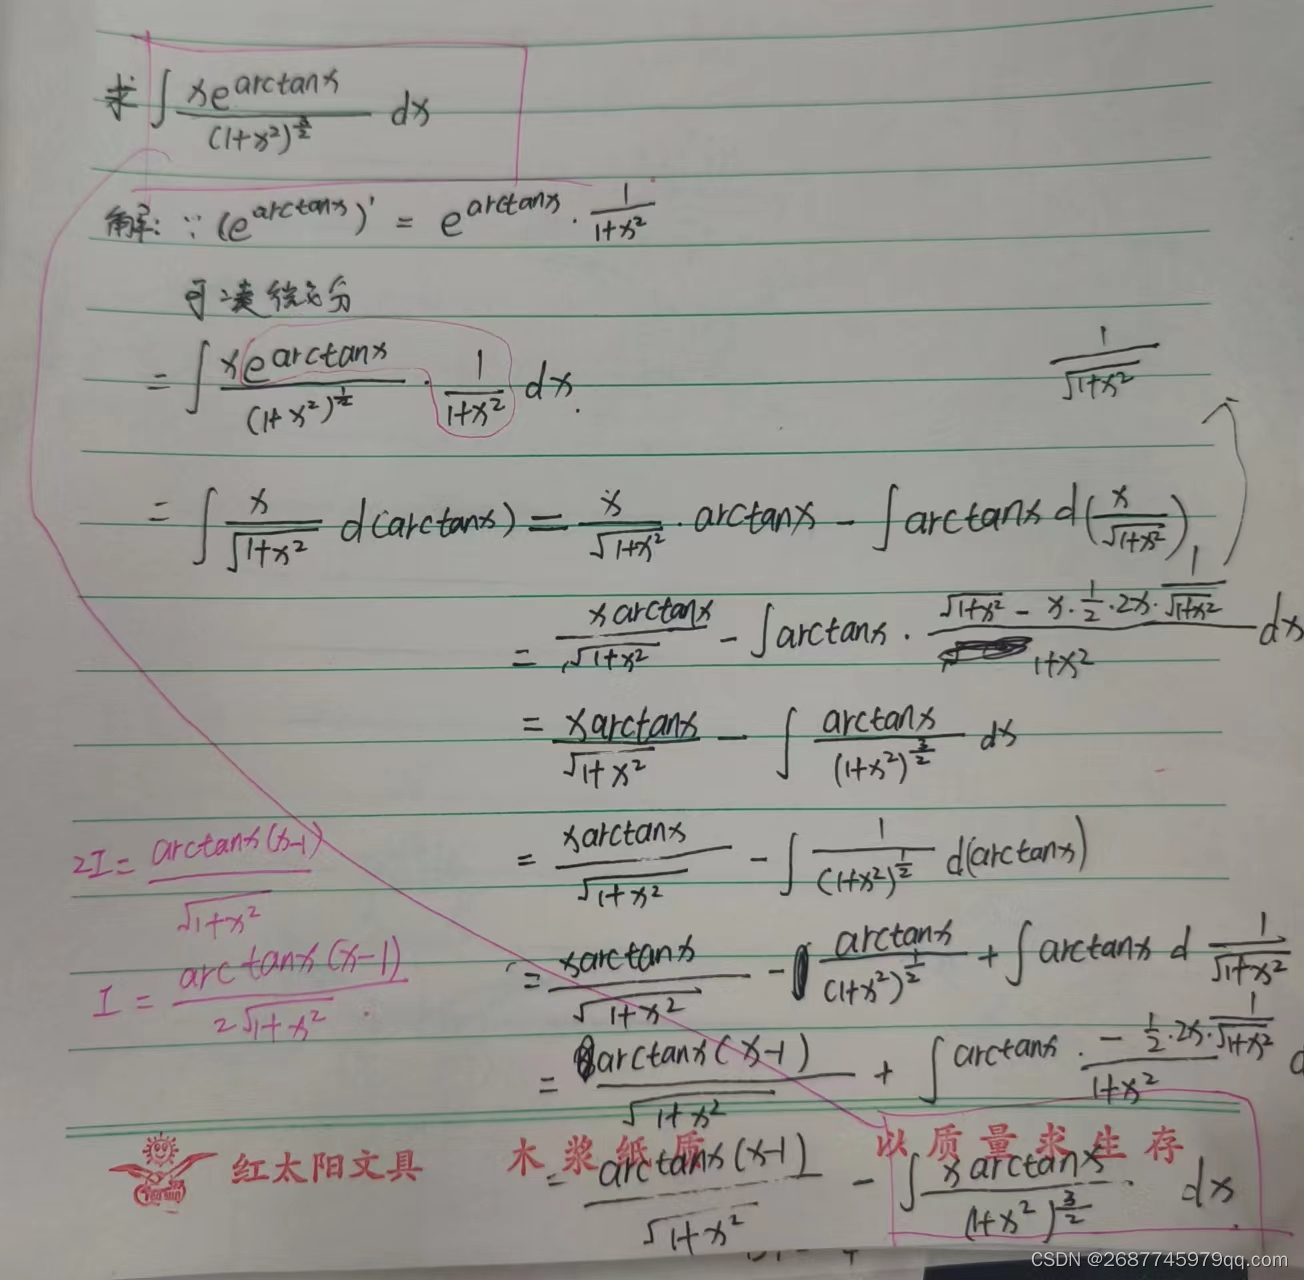 求 ∫ xe^{arctanx} / (1+x²)^{3/2} dx
解: ∵ (e^{arctanx})' = e^{arctanx} · 1/(1+x²)
可凑微分
= ∫ xe^{arctanx} / (1+x²)^{1/2} · 1/(1+x²) dx.
1/√(1+x²)
= ∫ x/√(1+x²) d(arctanx) = x/√(1+x²) · arctanx − ∫ arctanx d(x/√(1+x²))
= xarctanx/√(1+x²) − ∫ arctanx · (√(1+x²) − x·1/2·2x·1/√(1+x²)) / (1+x²) dx
= xarctanx/√(1+x²) − ∫ arctanx/(1+x²)^{3/2} dx
= xarctanx/√(1+x²) − ∫ 1/(1+x²)^{1/2} d(arctanx)
= xarctanx/√(1+x²) − arctanx/(1+x²)^{1/2} + ∫ arctanx d 1/√(1+x²)
= arctanx(x−1)/√(1+x²) + ∫ arctanx · (−1/2·2x·1/√(1+x²)) / (1+x²) d
= arctanx(x−1)/√(1+x²) − ∫ xarctanx/(1+x²)^{3/2} · dx
2I = arctanx(x−1)/√(1+x²)
I = arctanx(x−1)/2√(1+x²).
红太阳文具 木浆纸质 以质量求生存
CSDN @2687745979qq.com